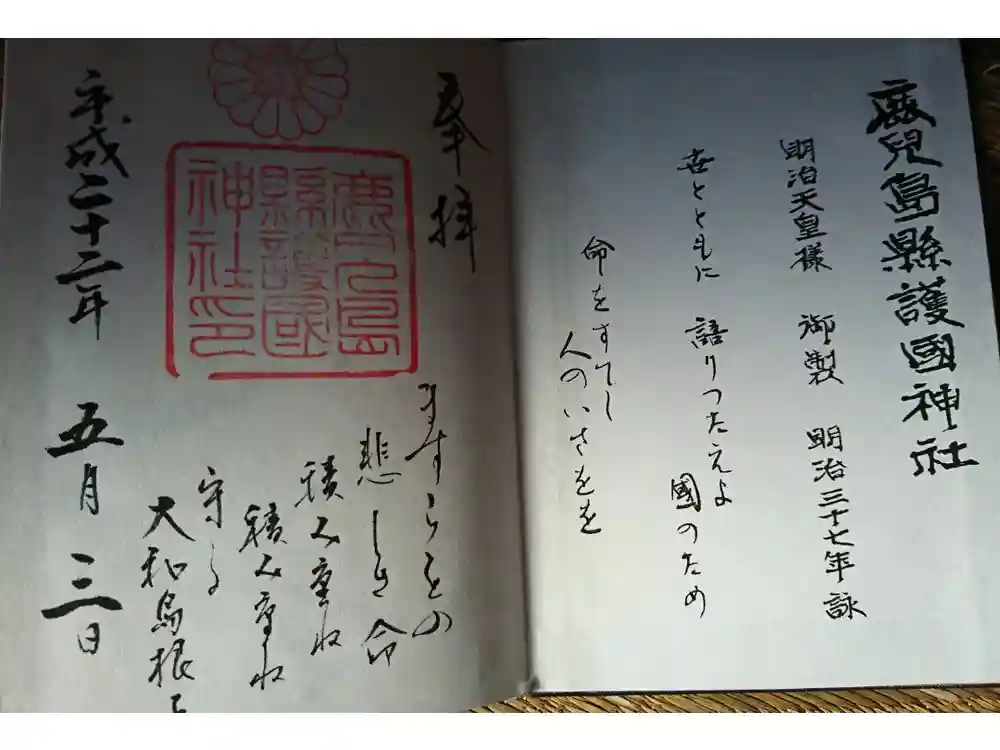 鹿兒島縣護國神社
明治天皇様 御製 明治三十七年詠
世とともに 語りつたえよ 國のため
命をすてし
人のいさをを
奉拝
鹿兒島
縣護國
神社印
ますらをの
悲しき命
積み重ね
積み重ね
守る
大和島根を
平成二十二年 五月三日